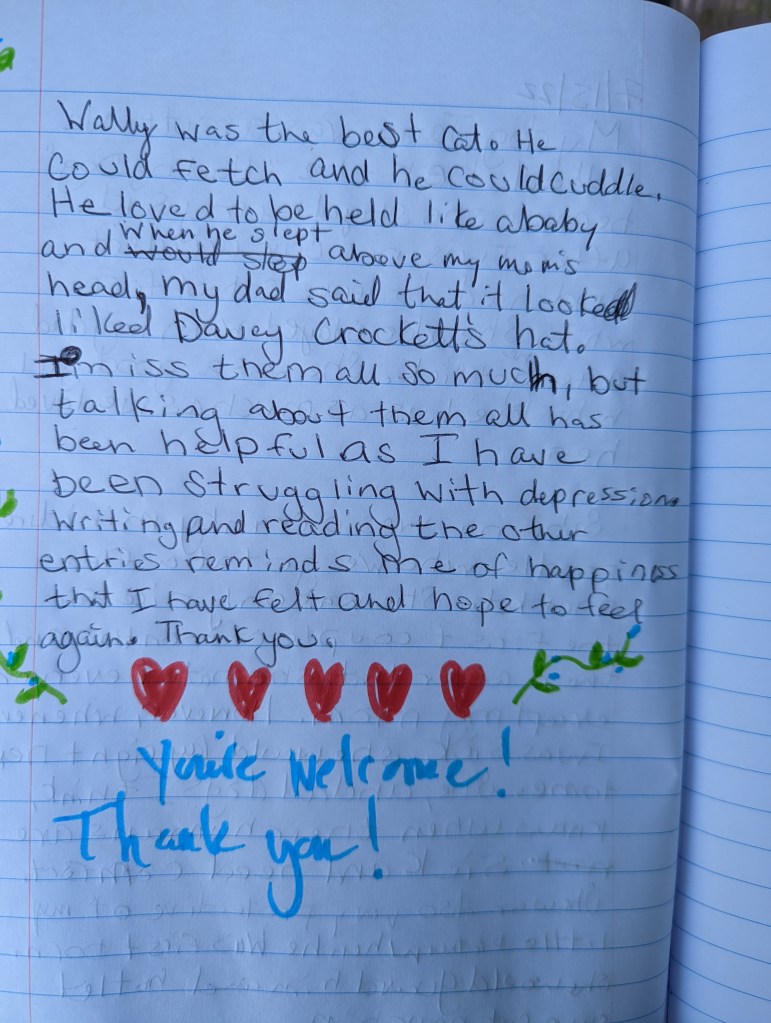 Wally was the best Cat. He
Could fetch and he could cuddle.
He loved to be held like a baby
and when he slept would slep above my mom's
head, my dad said that it looked
liked Davey Crockett's hat.
I miss them all so much, but
talking about them all has
been helpful as I have
been struggling with depression.
Writing and reading the other
entries reminds me of happiness
that I have felt and hope to feel
again. Thank you.
You're Welcome!
Thank you!